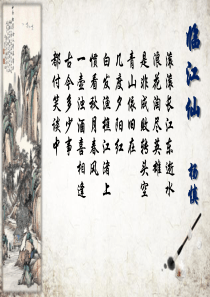 临江仙 杨慎
滚滚长江东逝水
浪花淘尽英雄
是非成败转头空
青山依旧在
几度夕阳红
白发渔樵江渚上
惯看秋月春风
一壶浊酒喜相逢
古今多少事
都付笑谈中